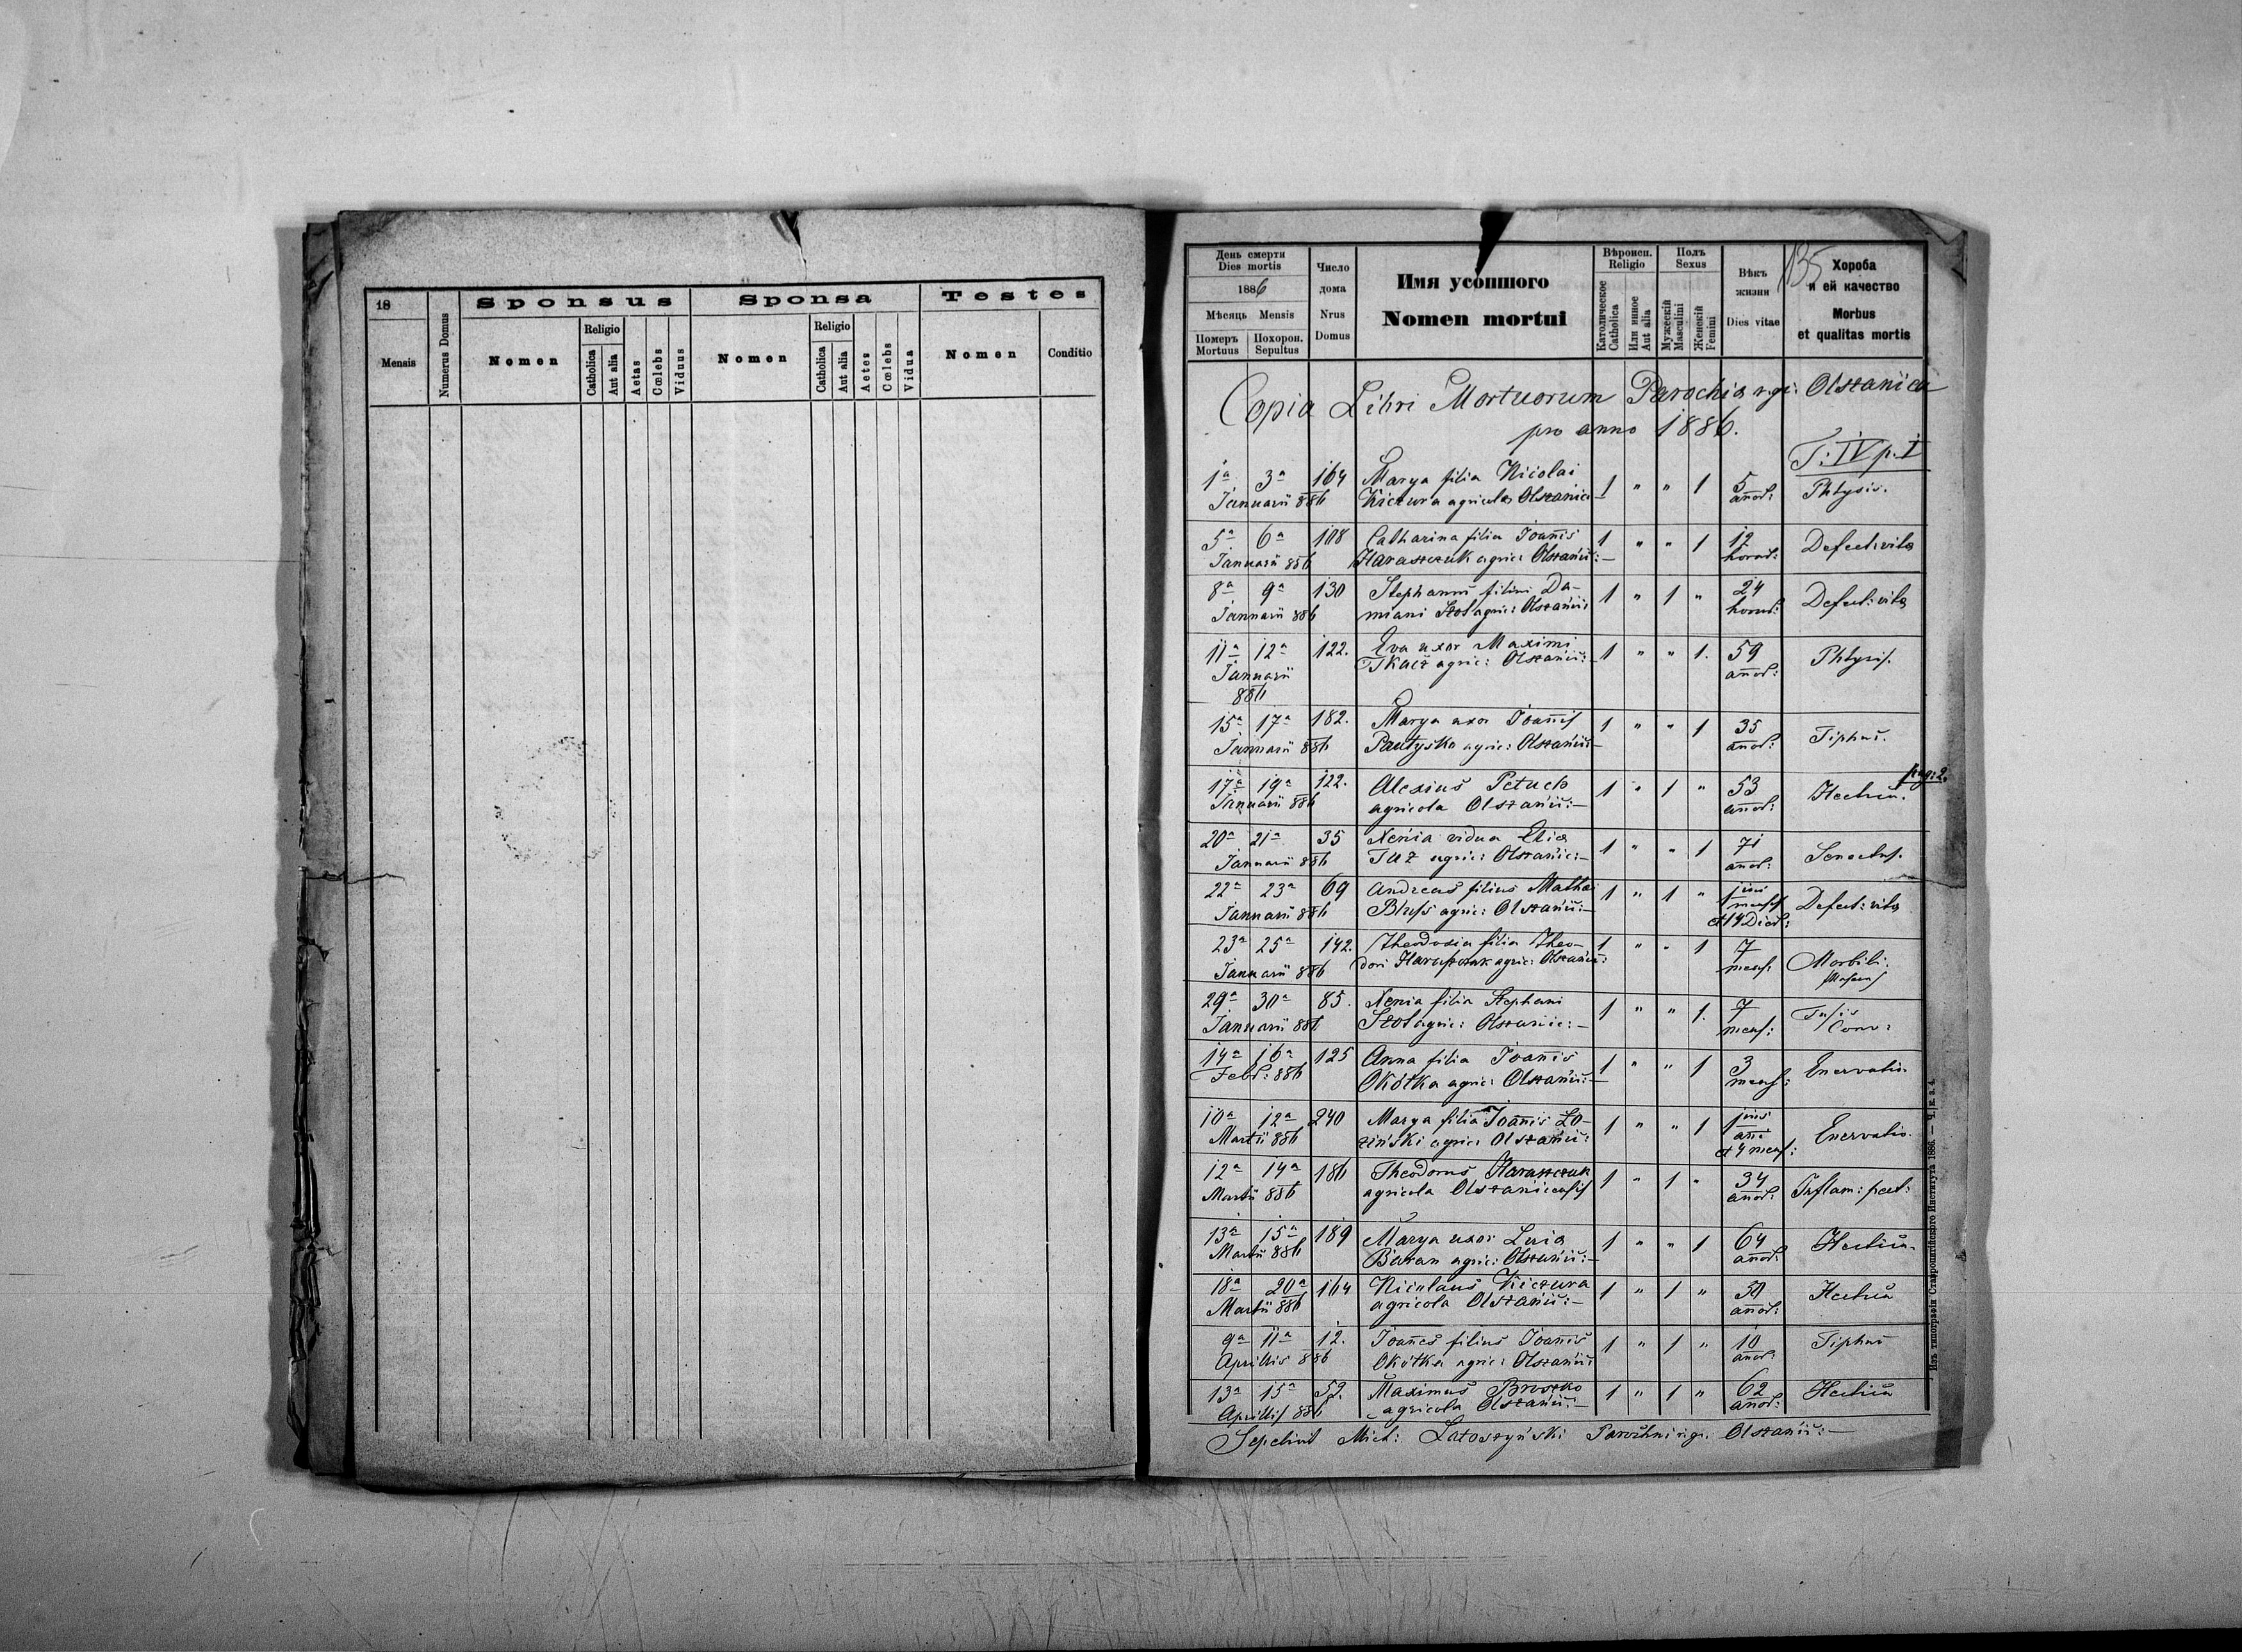 18
Mensis
Numerus Domus
Sponsus
Nomen
Religio
Catholica
Aut alia
Aetas
Cœlebs
Viduus
Sponsa
Nomen
Religio
Catholica
Aut alia
Aetes
Cœlebs
Vidua
Testes
Nomen
Conditio
День смерти
Dies mortis
1886
Мѣсяць Mensis
Померъ
Mortuus
Похорон.
Sepultus
Число
дома
Nrus
Domus
Имя усопшого
Nomen mortui
Вѣроисп.
Religio
Католическое
Catholica
Или инное
Aut alia
Полъ
Sexus
Мужескій
Masculini
Женскій
Femini
Вѣкъ
жизни
Dies vitae
135
Хороба
и ей качество
Morbus
et qualitas mortis
Copia Libri Mortuorum Parochia r.gr: Olszanica
pro anno 1886.
T: IV p: I
1a 3a 164 Marya filia Nicolai 1 " " 1 5 Phtysis.
Januarii 886 Kiczura agricola Olszanici— anor:
5a 6a 108 Catharina filia Joannis 1 " " 1 12 Defect: vita
Januarii 886 Haraszczuk agric: Olszanic:— horar:
8a 9a 130 Stephanus filius Da- 1 " 1 " 24 Defect: vita
Januarii 886 miani Szot agric: Olszanic: horar:
11a 12a 122. Eva uxor Maximi 1 " " 1. 59 Phtysis.
Januarii Tkacz agric: Olszanic:— anor:
886
15a 17a 182. Marya uxor Joannis 1 " " 1 35 Tiphus.
Januarii 886 Pautysko agric: Olszanic:— anor:
pag: 2.
17a 19a 122. Alexius Petuch 1 " 1 " 53 Hectica.
Januarii 886 agricola Olszanic:— anor:
20a 21a 35 Xenia vidua Elia 1 " " 1 71 Senectus.
Januarii 886 Tuz agric: Olszanic:— anor:
22a 23a 69 Andreas filius Mathai 1 " 1 " 1 Defect: vita
Januarii 886 agric: Olszanic:— mensis
et 14 Dier:
23a 25a 142. Theodosia filia Theo- 1 " " 1 7 Morbili.
Januarii 886 dori Haraszczuk agric: Olszanic: mens:
29a 30a 85. Xenia filia Stephani 1 " " 1. 7 Tusis
Januarii 886 Szot agric: Olszanic:— mens: Conv:
14a 16a 125 Anna filia Joannis 1 " " 1 3 Enervatio.
Febr: 886 Okótka agric: Olszanic:— mens:
10a 12a 240 Marya filia Joannis Ło- 1 " " 1 1 Enervatio.
Martii 886 ziński agric: Olszanic: ani
et 4 mens:
12a 14a 186 Theodorus Haraszczuk 1 " 1 " 34 Inflam: pect:
Martii 886 agricola Olszanicensis anor:
13a 15a 189 Marya uxor Luca 1 " " 1 64 Hectica.
Martii 886 Baran agric: Olszanic:— anor:
18a 20a 164 Nicolaus Kiczura 1 " 1 " 30 Hectica
Martii 886 agricola Olszanic:— anor:
9a 11a 12. Joannes filius Joannis 1 " 1 " 10 Tiphus
Aprillis 886 Okótka agric: Olszanic: anor:
13a 15a 52. Maximus Broszko 1 " 1 " 62 Hectica
Aprillis 886 agricola Olszanic:— anor:
Sepelivit Mich: Łatoszyński Parochus r.gr. Olszanic:—
Изъ типографіи Ставропигійского Института 1886. — Ч. к. з. 4.